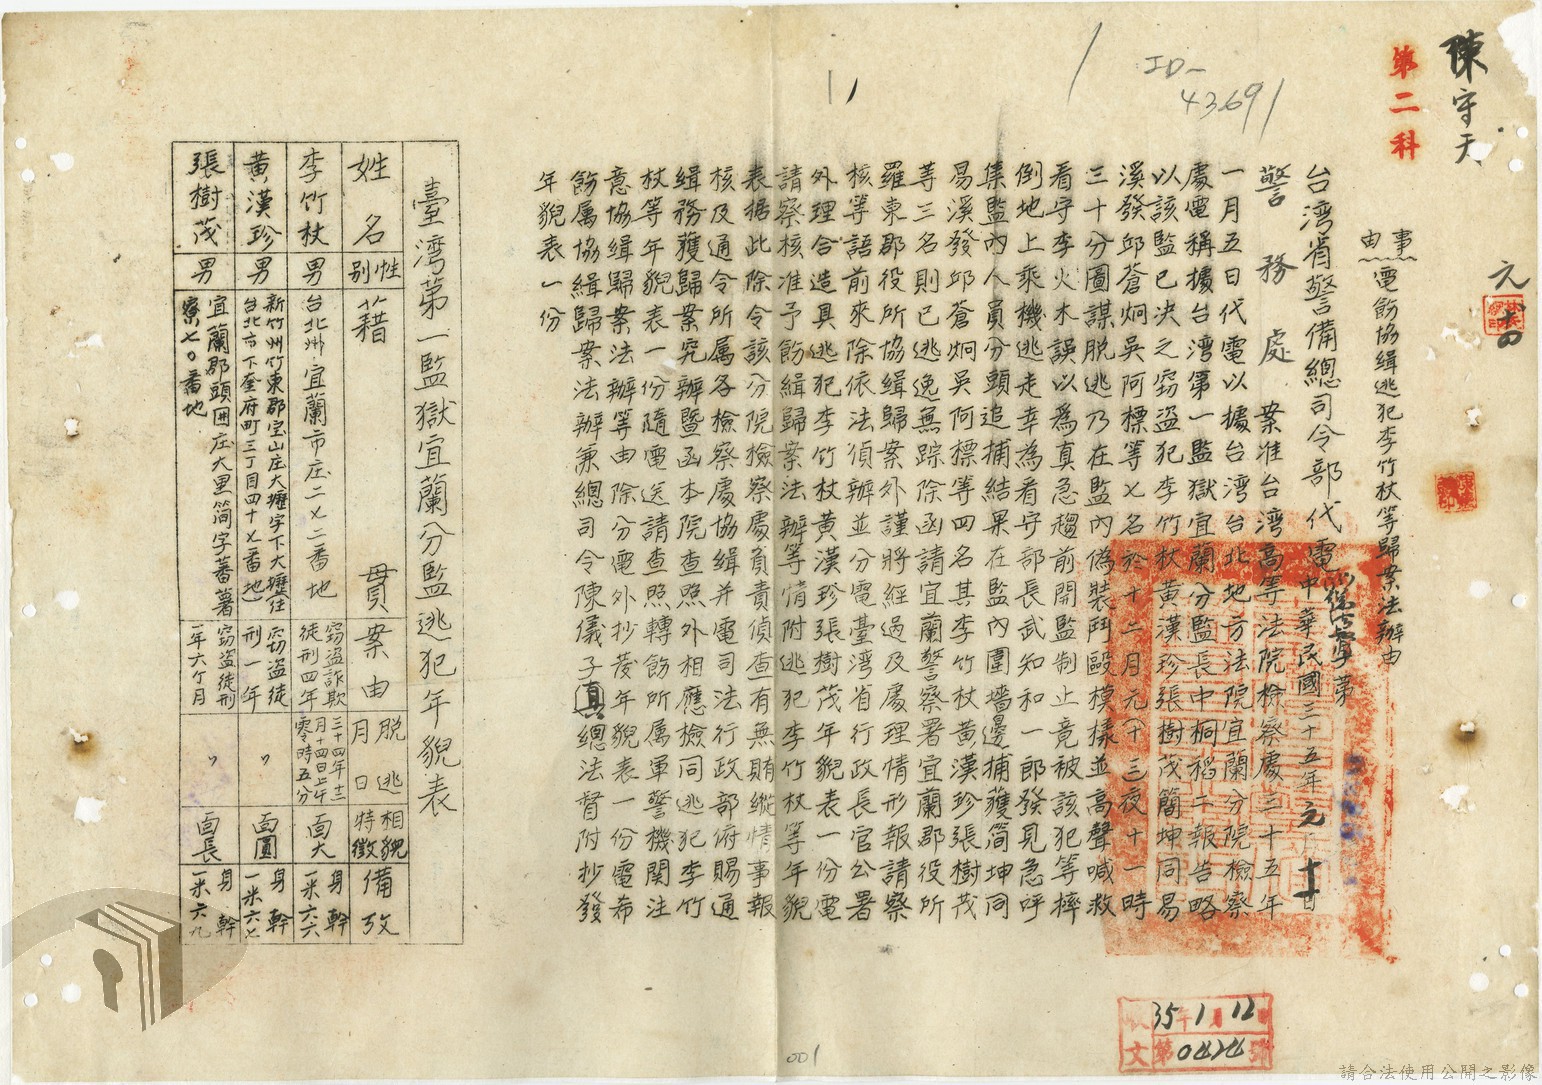 陳守天
第二科
元
ID-
43691
事由
電飭協緝逃犯李竹杖等歸案法辦由
台湾省警備總司令部代電
中華民國三十五年元月十 日
第
警務處 案准台湾高等法院檢察處三十五年
一月五日代電以據台湾台北地方法院宜蘭分院檢察
處電稱據台湾第一監獄宜蘭分監長中桐稻二報告略
以該監已决之窃盗犯李竹杖黄漢珍張樹茂簡坤同易
溪發邱蒼炯吳阿標等七名於十二月元十三夜十一時
三十分圖謀脱逃乃在監內偽裝鬥毆模樣並高聲喊救
看守李火木誤以為真急趨前開監制止竟被該犯等摔
倒地上乘機逃走幸為看守部長武知和一郎發見急呼
集監內人員分頭追捕結果在監內圍墻邊捕獲简坤同
易溪發邱蒼炯吳阿標等四名其李竹杖黄漢珍張樹茂
等三名則已逃逸無踪除函請宜蘭警察署宜蘭郡役所
羅東郡役所協緝歸案外謹將經過及處理情形報請察
核等語前來除依法偵辦並分電臺湾省行政長官公署
外理合造具逃犯李竹杖黄漢珍張樹茂年貌表一份電
請察核准予飭緝歸案法辦等情附逃犯李竹杖等年貌
表据此除令該分院檢察處負責偵查有無賄縱情事報
核及通令所属各檢察處協緝并電司法行政部府賜通
緝務獲歸案究辦暨函本院查照外相應檢同逃犯李竹
杖等年貌表一份隨電送請查照轉飭所属軍警機関注
意協緝歸案法辦等由除分電外抄蕟年貌表一份電希
飭属協緝歸案法辦兼總司令陳儀子真總法督附抄發
年貌表一份
臺湾第一監獄宜蘭分監逃犯年貌表
姓名 性别 籍貫 案由 脱逃月日 相貌特徵 備攷
李竹杖 男 台北州宜蘭市庄二七二番地 窃盗詐欺徒刑四年 三十四年十二月十四日上午零時五分 面大 身幹一米六六
黄漢珍 男 新竹州竹東郡宝山庄大壢字下大壢(住台北市下奎府町三丁目四十七番地) 窃盗徒刑一年 〃 面圓 身幹一米六七
張樹茂 男 宜蘭郡頭囲庄大里简字蕃薯寮七〇番地 窃盗徒刑一年六ケ月 〃 面長 身幹一米六九
35年1月12日
文第 號
001
請合法使用公開之影像